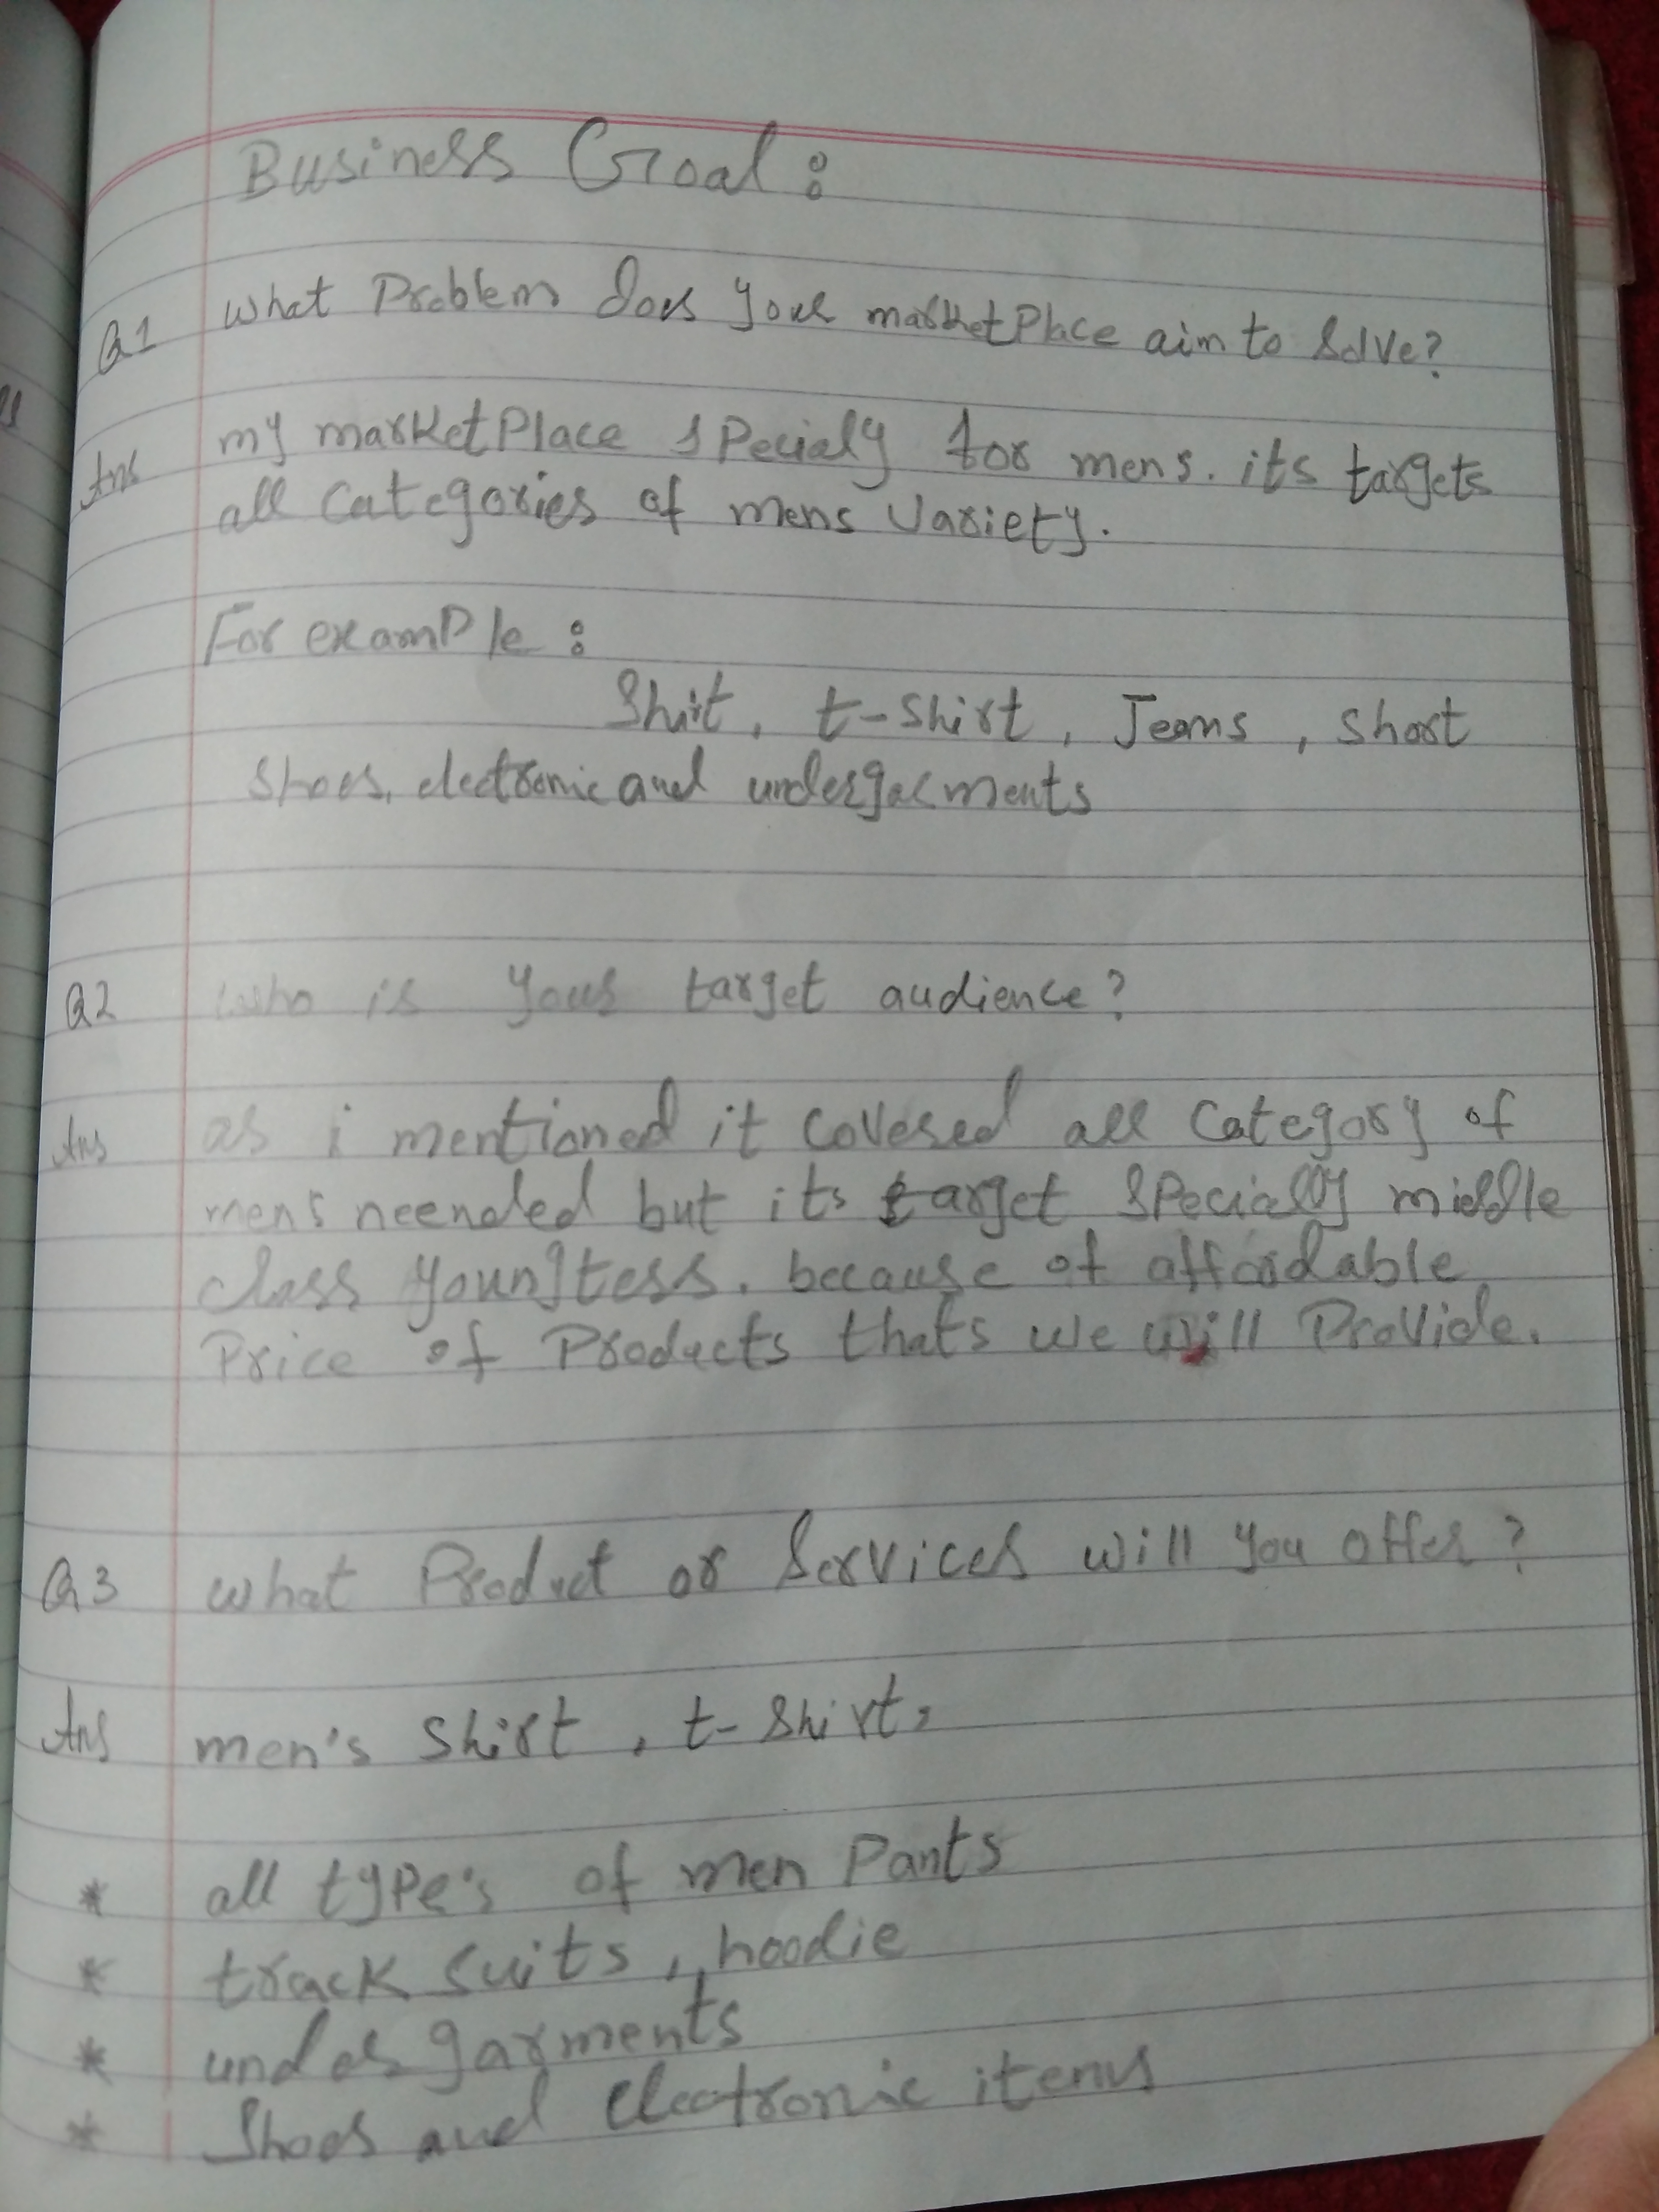 Business Goal :
Q1 what Problem does your marketPlace aim to Solve?
Ans my marketPlace specialy for mens. its targets
all Categories of mens Variety.
For example :
Shirt, t-shirt, Jeans, short
Shoes, electronic and undergarments
Q2 who is your target audience?
Ans as i mentioned it covered all Category of
mens neended but its target specially middle
class youngters. because of affordable
Price of Products thats we will Provide.
Q3 what Product or Services will you offer?
Ans men's shirt, t-shirt,
* all type's of men Pants
* track suits, hoodie
* under garments
* Shoes and electronic items